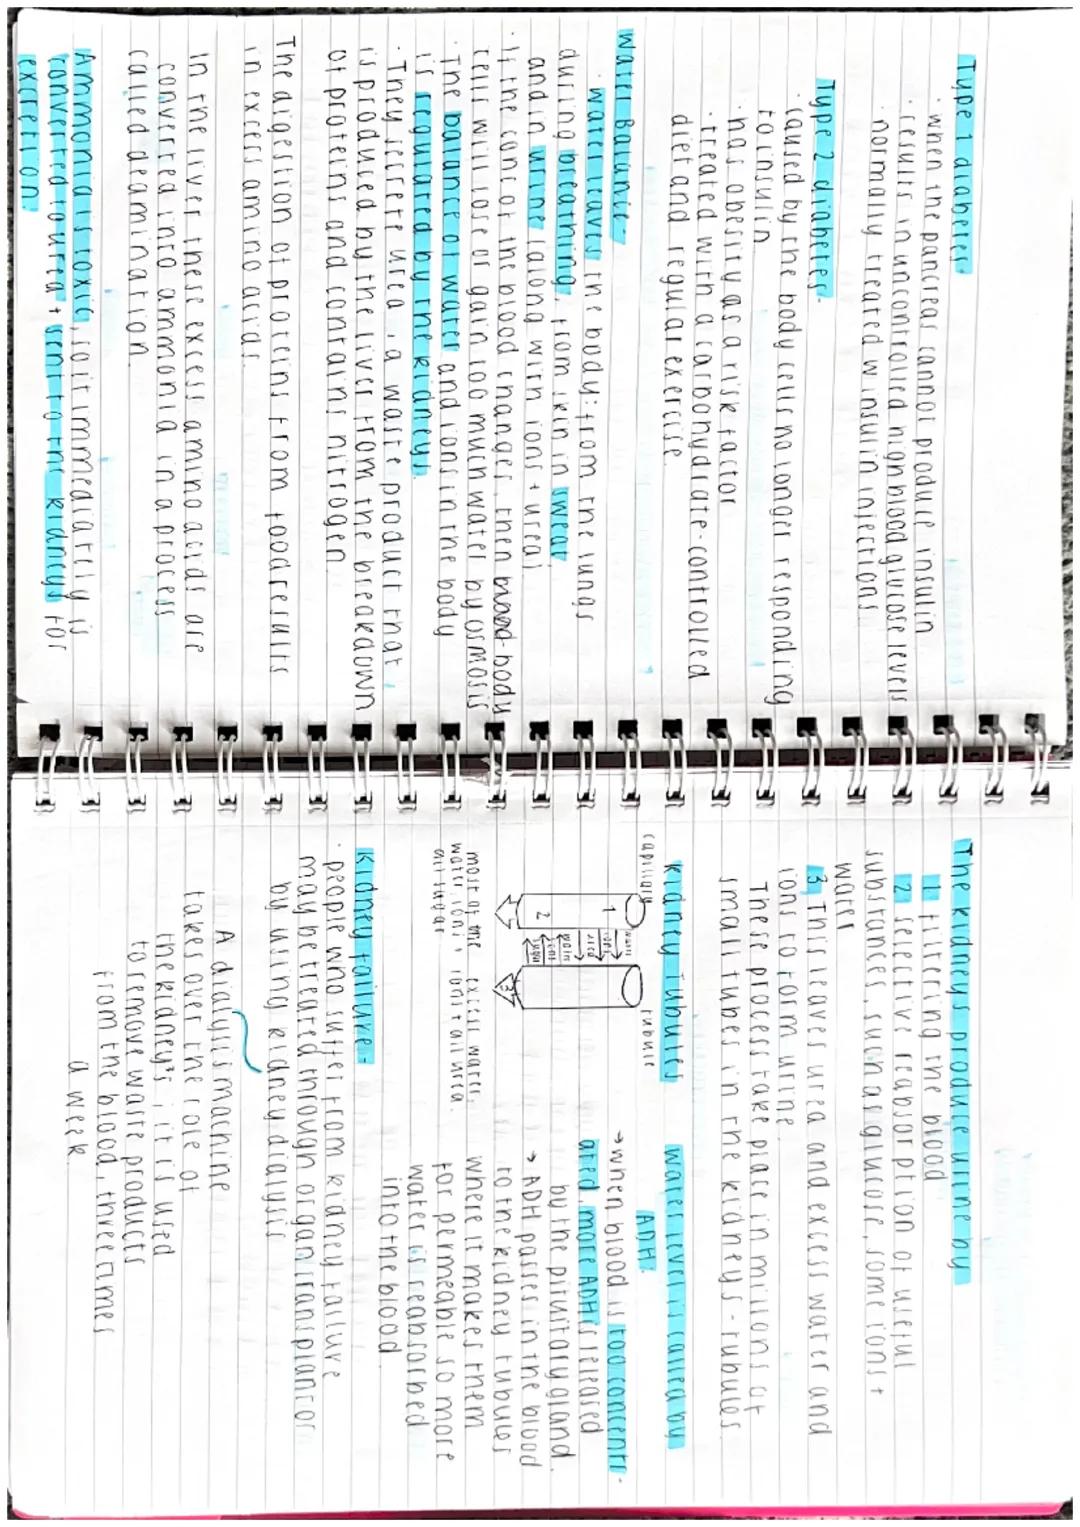 Type 1 diabetes-
· when the pancreas cannot produce insulin
· results in uncontrolled high blood glucose levels
· normally treated w insulin injections
Type 2 diabetes-
· caused by the body cells no longer responding
to insulin
· has obesity as a risk factor
· treated with a carbohydrate-controlled
diet and regular exercise.
Water Balance-
· water leaves the body: from the lungs
during breathing, from skin in sweat
and in urine (along with ions + urea)
· If the conc of the blood changes, then body
cells will lose or gain too much water by osmosis
· The balance of water and ions in the body
is regulated by the kidneys.
· They secrete urea, a waste product that
is produced by the liver from the breakdown
of proteins and contains nitrogen
The digestion of proteins from food results
in excess amino acids.
In the liver these excess amino acids are
converted into ammonia in a process
called deamination.
Ammonia is toxic, so it immediately is
converted to urea + sent to the kidneys for
excretion
The kidneys produce urine by
1. filtering the blood
2. selective reabsorption of useful
substances, such as glucose, some ions +
water
3. This leaves urea and excess water and
ions to form urine.
These process take place in millions of
small tubes in the kidneys - tubules.
kidney Tubules
capillary
tubule
1
water
ions
urea
water
ions
sugar
2
3
most of the
water, ions +
all sugar
excess water,
ions + all urea.
water level is called by
ADH.
→ when blood is too concentr-
ated more ADH is released
by the pituitary gland.
→ ADH passes in the blood
to the kidney tubules
where it makes them
for permeable so more
water is reabsorbed
into the blood.
Kidney failure-
· people who suffer from kidney failure
may be treated through organ transplant or
by using kidney dialysis
A dialysis machine
takes over the role of
the kidney's it it is used
to remove waste products
from the blood, three times
a week.